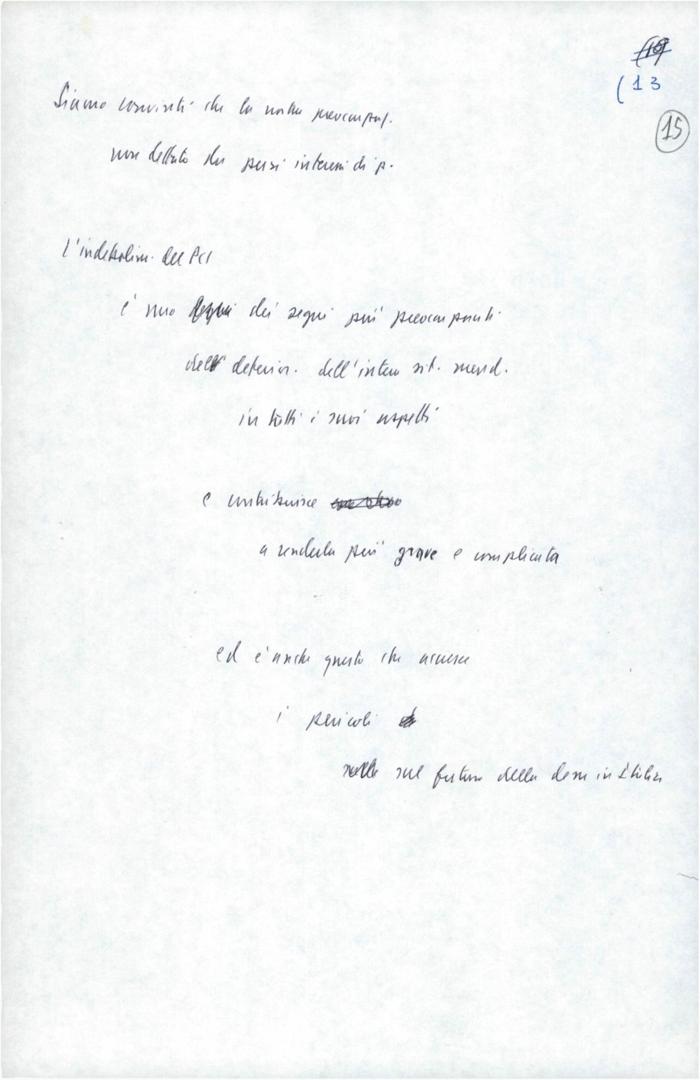 (13
15
Siamo convinti che la nostra preoccupaz.
non dettata da pursi interessi di p.
L'indebolim. del PCI
è uno dei segni più preoccupanti
dell deterior. dell'intera sit. merid.
in tutti i suoi aspetti
e contribuisce
a renderla più grave e complicata
ed è anche questo che accresce
i pericoli
sul futuro della dem in Italia